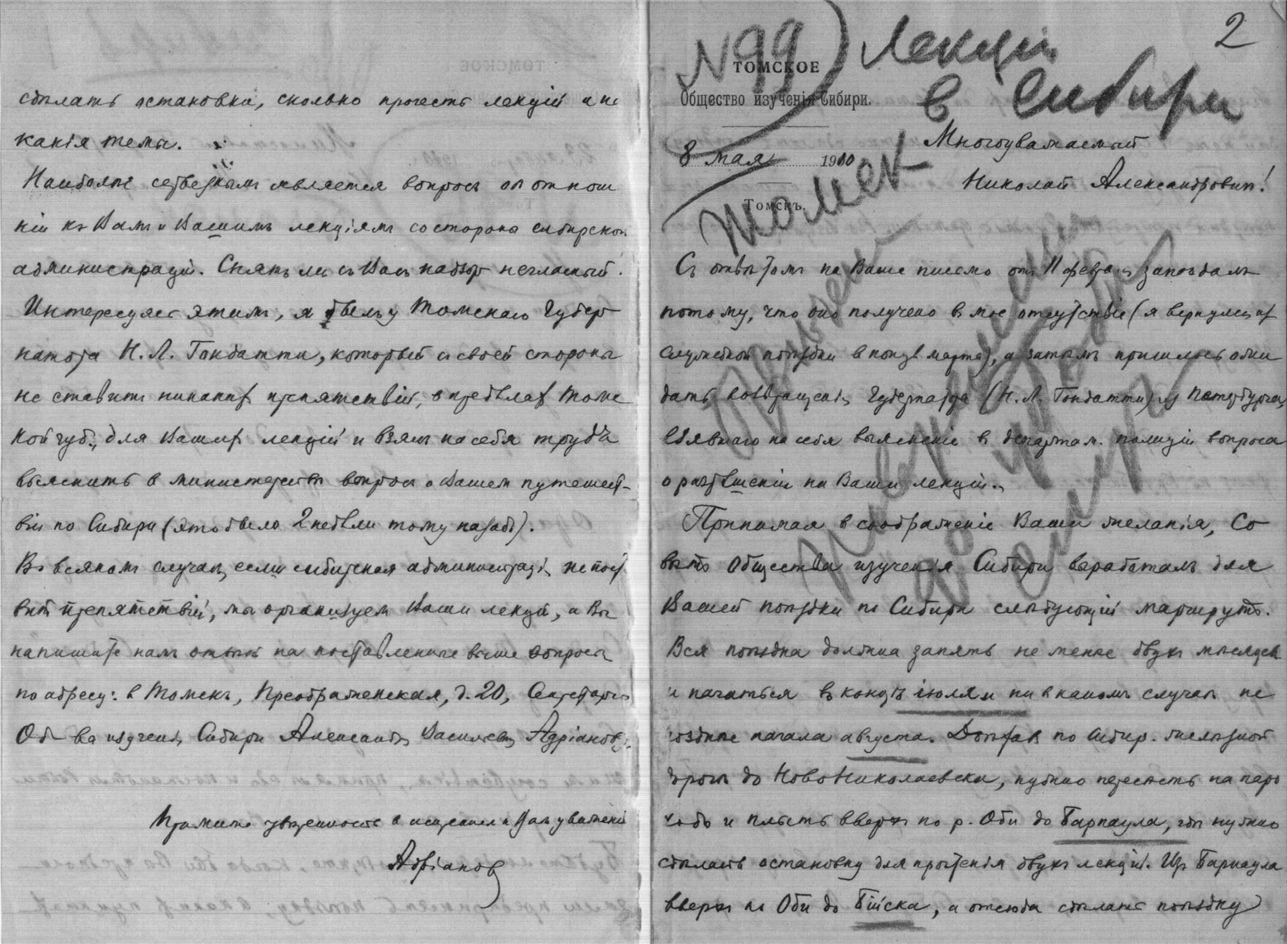 сдѣлать остановка, сколько прочесть лекцій и на
какія темы.
Наиболѣе серьезнымъ является вопросъ объ отноше
ніи къ Вамъ и Вашимъ лекціямъ со стороны сибирской
администраціи. Снятъ ли съ Васъ надзоръ негласный.
Интересуясь этимъ, я былъ у Томскаго Губер
натора Н. Л. Гондатти, который съ своей стороны
не ставитъ никакихъ препятствій, въ предѣлах Томс
кой губ., для Вашихъ лекцій и взялъ на себя трудъ
выяснить в министерствѣ вопросъ о Вашем путешест-
віи по Сибири (это было 2 недѣли тому назадъ).
Во всякомъ случаѣ, если сибирская администрація не поста
витъ препятствій, мы организуем Ваши лекціи, а Вы
напишите намъ отвѣтъ на поставленные выше вопросы
по адресу: в Томскъ, Преображенская, д. 20, Секретарю
Об-ва изученія Сибири Александру Васильев. Адріанову.
Примите увѣренность в искреннем къ Вамъ уваженіи
Адріановъ
2
N 99) Лекціи
в Сибири
ТОМСКОЕ
Общество изученія Сибири.
8 мая 1910
Томскъ.
Томск
Многоуважаемый
Николай Александрович!
Съ отвѣтомъ на Ваше письмо от февр. я запоздалъ
потому, что оно получено в мое отсутствіе (я вернулся из
служебной поѣздки в концѣ марта), а затѣмъ пришлось ожи
дать возвращенія Губернатора (Н. Л. Гондатти) из Петербурга,
взявшаго на себя выясненіе в департам. полиціи вопроса
о разрѣшеніи на Ваши лекціи.
Принимая в соображеніе Ваши желанія, Со
вѣтъ Общества изученія Сибири выработалъ для
Вашей поѣздки по Сибири слѣдующій маршрутъ.
Вся поѣздка должна занять не менѣе двухъ мѣсяцев
и начаться въ концѣ іюля и ни в какомъ случаѣ не
позднѣе начала августа. Доѣхав по Сибир. желѣзной
дорогѣ до НовоНиколаевска, нужно пересѣсть на паро
ходъ и плыть вверхъ по р. Оби до Барнаула, гдѣ нужно
сдѣлать остановку для прочтенія двухъ лекцій. Изъ Барнаула
вверхъ по Оби до Бійска, а отсюда сдѣлать поѣздку